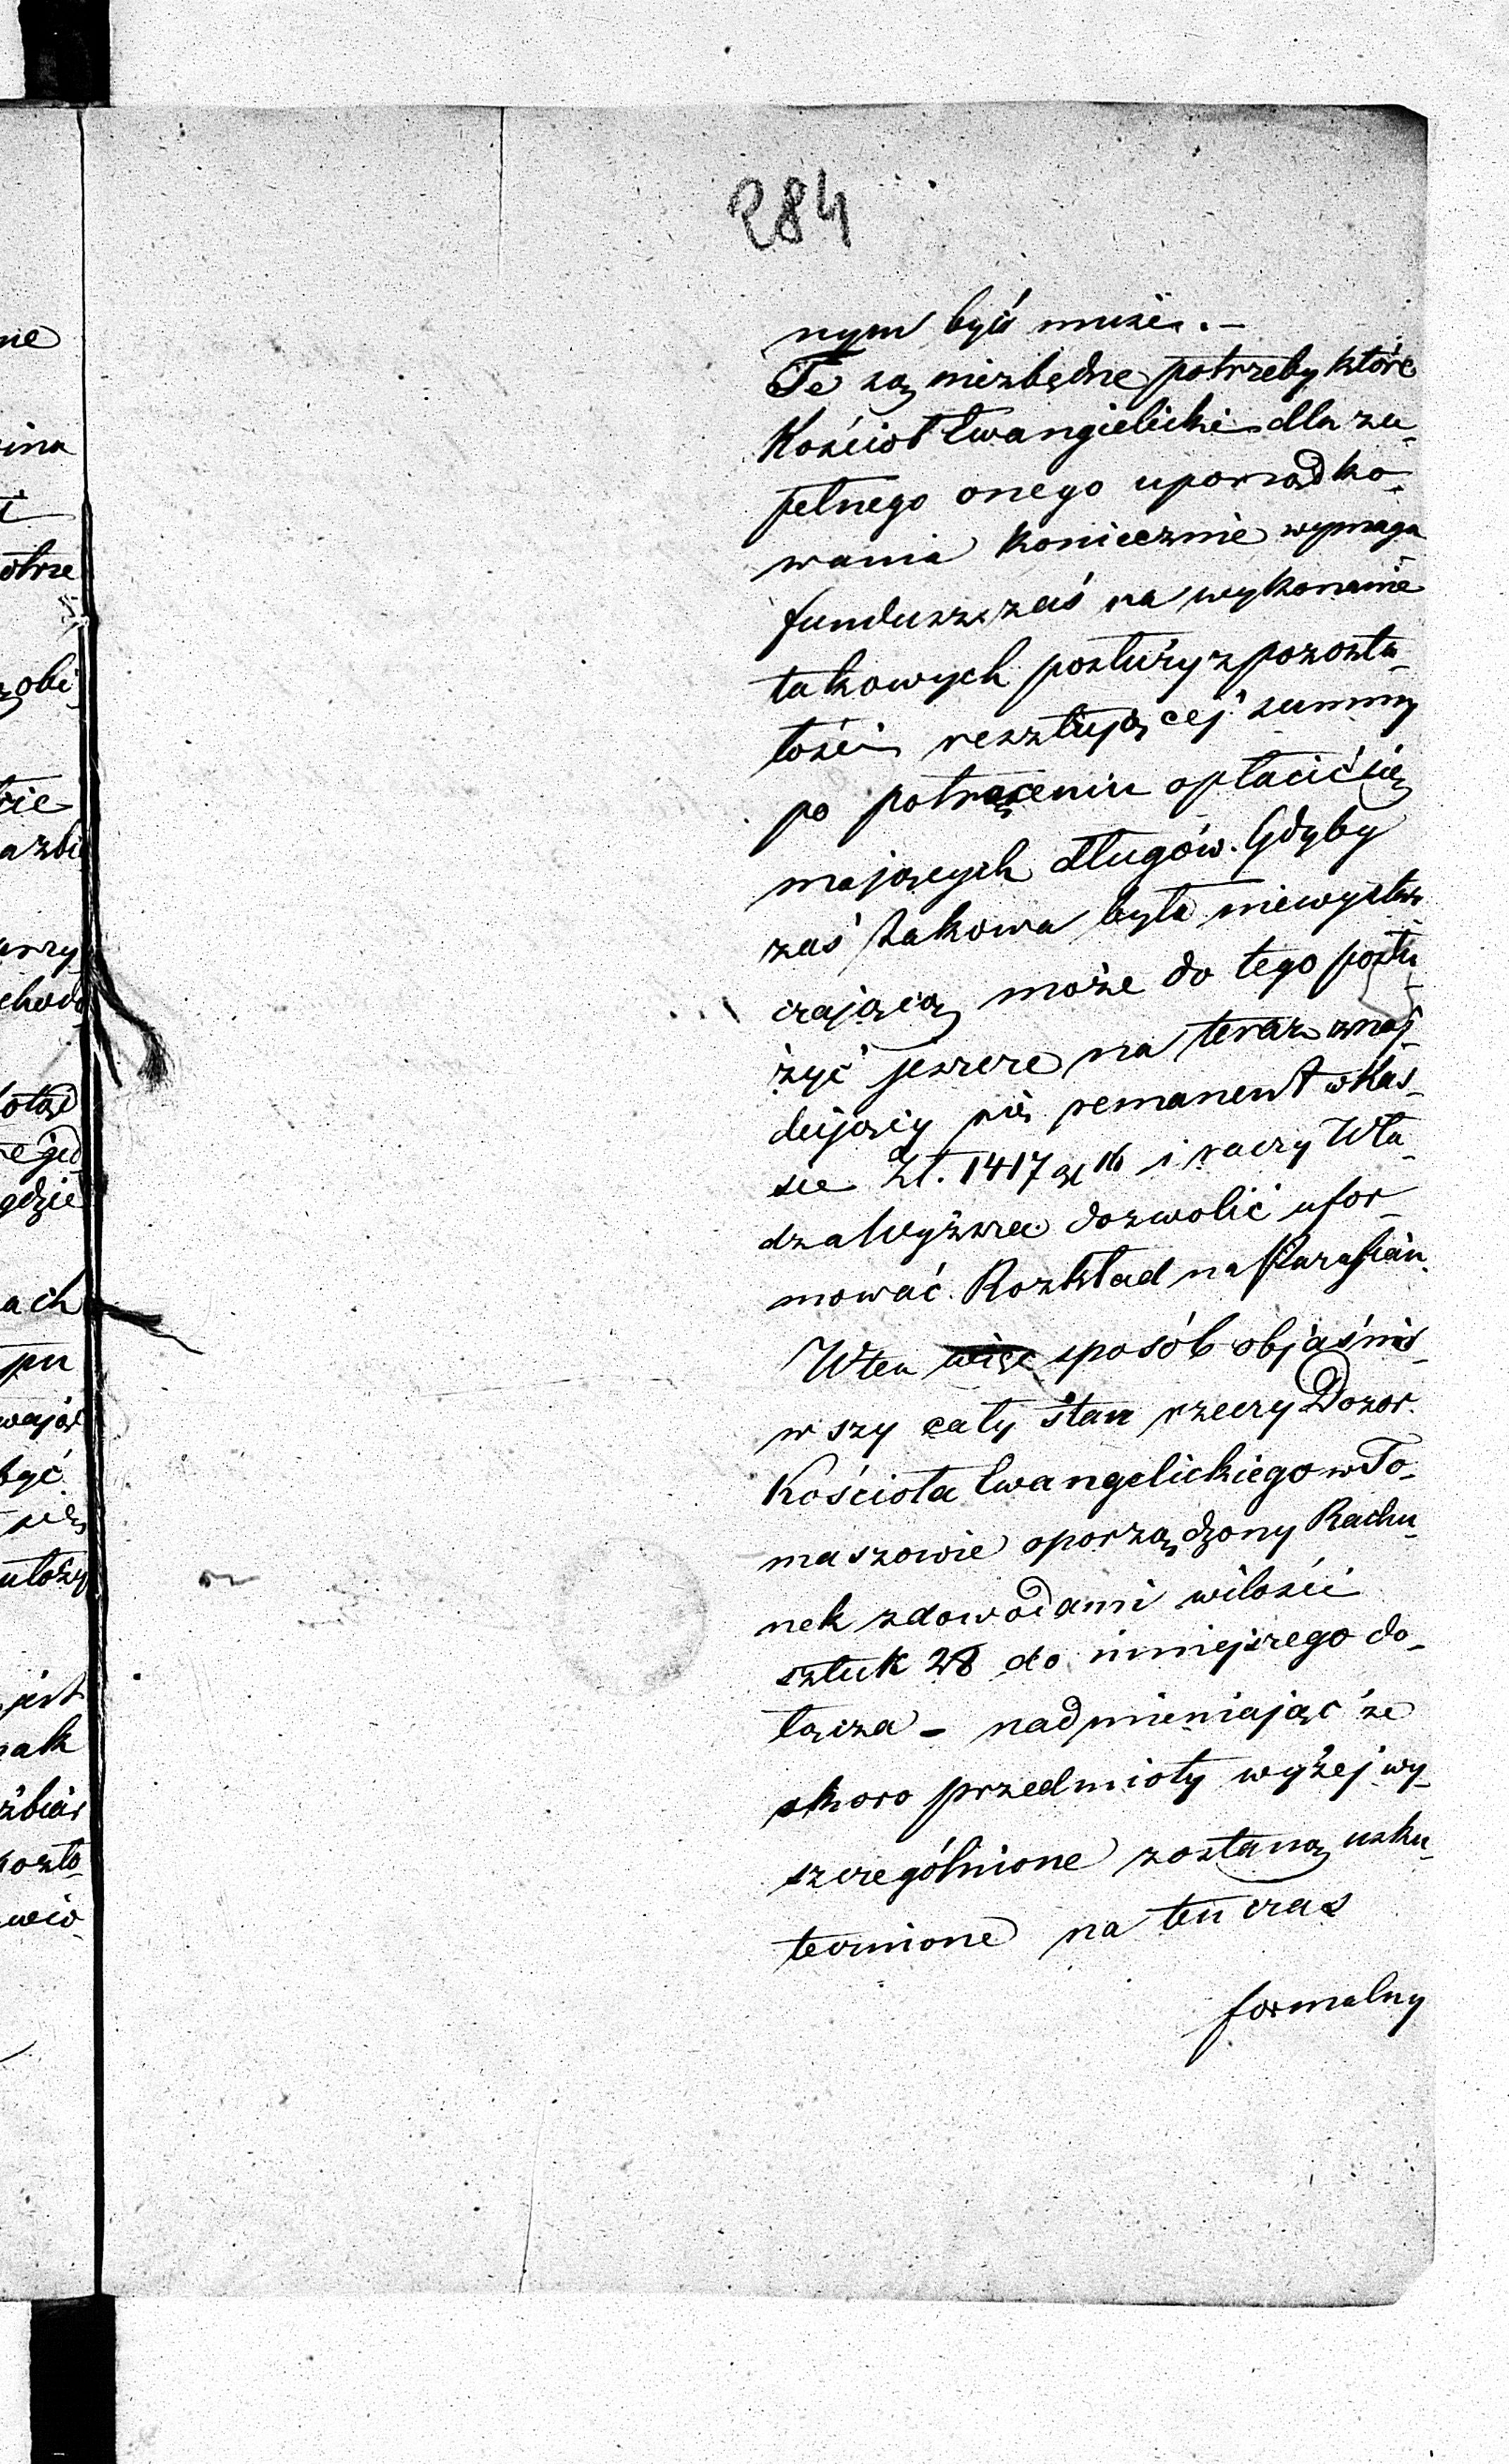 284
nym być musi. –
Te są niezbędne potrzeby które
Kościoł Ewangielicki dla zu-
pełnego onego uporządko-
wania koniecznie wymaga
fundusz zaś na wykonanie
takowych posłuży z pozosta-
łości resztującej summy
po potrąceniu opłacić się
mających długów. Gdyby
zaś takowa była niewystar-
czającą może do tego posłu-
żyć jeszcze na teraz znaj-
dujący się remanent w Kas-
sie Zł. 1417 gr 16 i raczy Wła-
dza Wyższa dozwolić ufor-
mować Rozkład na Parafian.
W ten więc sposób objaśni-
wszy cały stan rzeczy Dozor
Kościoła Ewangelickiego w To-
maszowie oporządzony Rachu-
nek z dowodami w ilości
sztuk 28 do niniejszego do-
łącza – nadmieniając że
skoro przedmioty wyżej wy-
szczególnione zostaną usku-
tecznione na ten czas
formalny